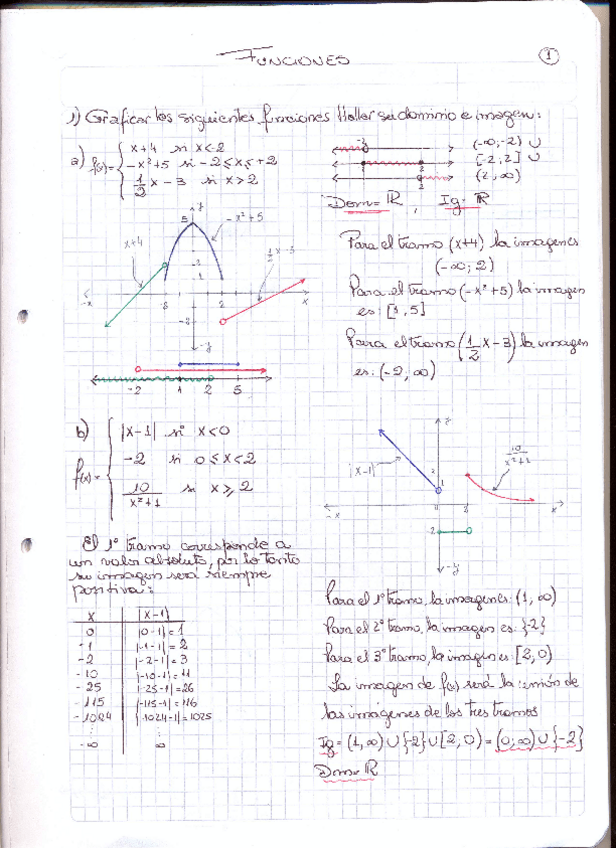 FUNCIONES
1
1) Graficar las siguientes funciones Hallar su dominio e imagen:
a) f(x)= { x+4 si x<-2
-x²+5 si -2≤x≤+2
1/2 x - 3 si x>2
-2
2
2
(-∞;-2) ∪
[-2;2] ∪
(2,∞)
Dom= ℝ , Ig= ℝ
y
5
-x²+5
x+4
2
1
1/2 x-3
-x
2
x
-2
-y
-2 1 2 5
Para el tramo (x+4) la imagen es
(-∞; 2)
Para el tramo (-x²+5) la imagen
es: [1,5]
Para el tramo (1/2 x-3) la imagen
es: (-2; ∞)
b)
f(x)= { |x-1| si x<0
-2 si 0≤x<2
10/(x²+1) si x≥2
|x-1|
10/(x²+1)
2
1
0
2
-x
x
-2
-y
El 1° tramo corresponde a
un valor absoluto, por lo tanto
su imagen será siempre
positiva:
x |x-1|
0 |0-1|=1
-1 |-1-1|=2
-2 |-2-1|=3
-10 |-10-1|=11
-25 |-25-1|=26
-115 |-115-1|=116
-1024 |-1024-1|=1025
⋮ ⋮
-∞ ∞
Para el 1° tramo, la imagen es: (1, ∞)
Para el 2° tramo, la imagen es: {-2}
Para el 3° tramo, la imagen es: [2,0)
La imagen de f(x) será la unión de
las imágenes de los tres tramos
Ig= (1,∞)∪{-2}∪[2,0) = (0;∞)∪{-2}
Dom=ℝ